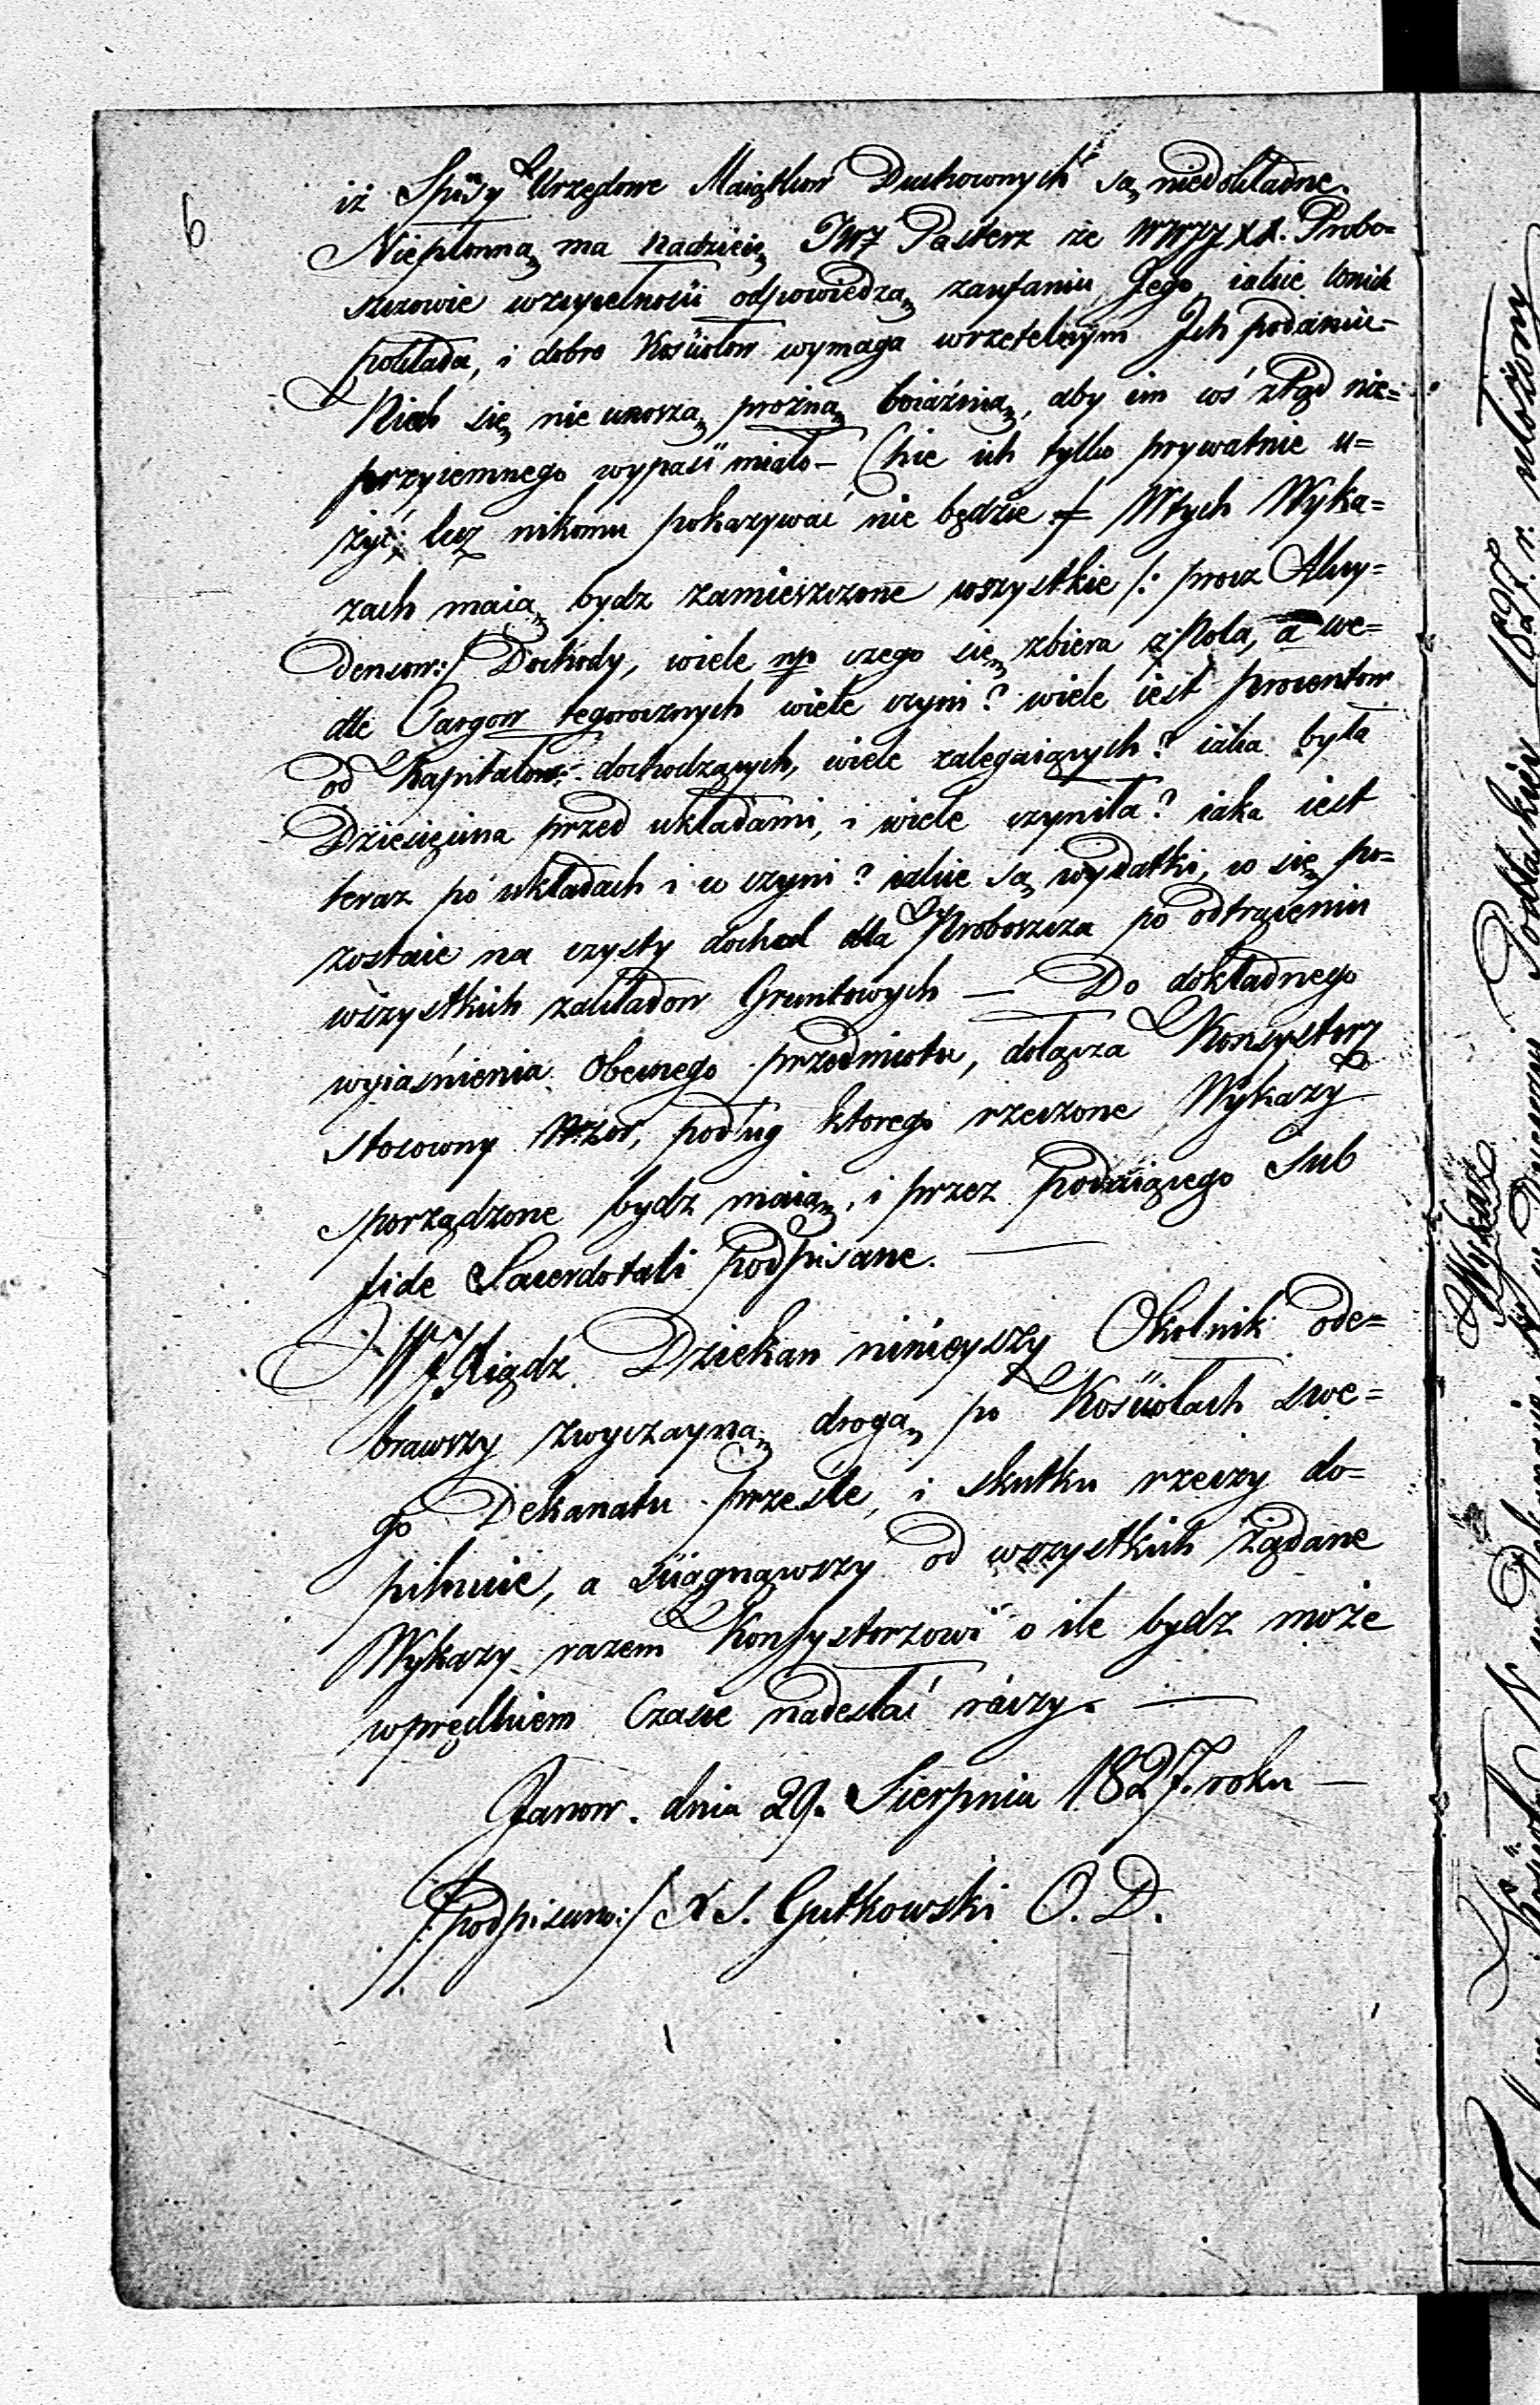 6
iż Spisy Urzędowe Maiątkow Duchownych są niedokładne.
Niepłonną ma nadzieię JWJ Pasterz że WWJJ XX. Probo=
szczowie wrzeczelności odpowiedzą zaufaniu Jego iakie wnich
pokłada, i dobro Kościołow wymaga wrzetelnym Ich podaniu -
Niech się nie unoszą prozną boiaźnią, aby im cóś ztąd nie=
przyiemnego wypaść miało - Chce ich tylko prywatnie u=
żyć, lecz nikomu pokazywać nie będzie. Wtych Wyka=
zach maią bydz zamieszczone wszystkie /: procz Akcy=
densow:/ Dochody, wiele np czego się zbiera z Rola, a we=
dle Targow tegorocznych wiele czyni? wiele iest procentow
od Kapitałow dochodzących, wiele zalegaiących? iaka była
Dziesięcina przed układami, i wiele czyniła? iaka iest
teraz po układach i co czyni? iakie są wydatki, co się po=
zostaie na czysty dochod dla Proboszcza po odtrąceniu
wszystkich zakładow Gruntowych — Do dokładnego
wyiaśnienia obecnego przedmiotu, dołącza Konsystorz
stosowny Wzor, podług ktorego rzeczone Wykazy
sporządzone bydz maią, i przez podaiącego Sub
fide Sacerdotali podpisane. —
WJXiądz Dziekan ninieyszy Okolnik ode=
brawszy zwyczayną drogą po Kościołach swe=
go Dekanatu prześle, i skutku rzeczy do=
pilnuie, a ściągnąwszy od wszystkich żądane
Wykazy razem Konsystorzowi o ile bydz może
wprędkiem Czasie nadesłać raczy. —
Janow. dnia 29. Sierpnia 1827. roku —
/:podpisano:/ X J. Gutkowski O. D.
Wykaz